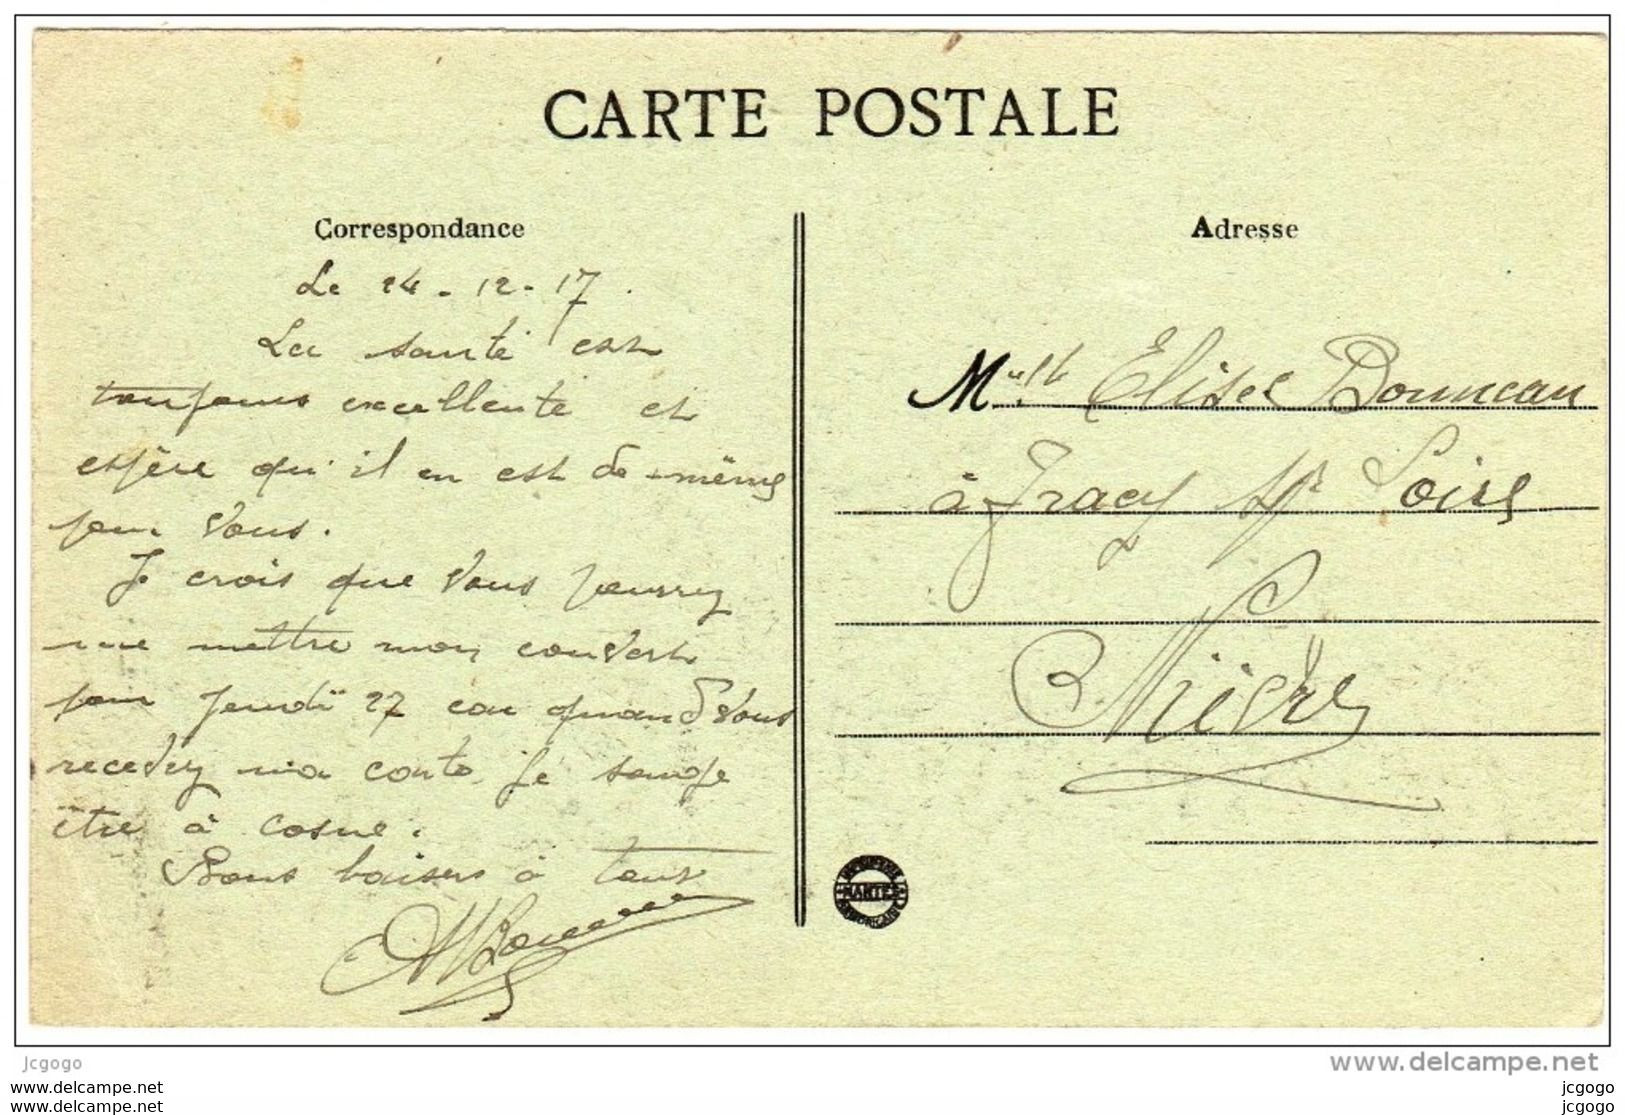 CARTE POSTALE
Correspondance
Le 24-12-17.
La santé est
toujours excellente et
espère qu'il en est de même
pour vous.
Je crois que vous pourrez
me mettre mon couvert
pour jeudi 27 car quand vous
recevrez ma carte je songe
être à Cosne.
Bons baisers à tous
Adresse
Elise
à Tracy s/r Loire
Nièvre
NANTES
jcgogo
www.delcampe.net
www.delcampe.net
jcgogo
www.delcampe.net
jcgogo